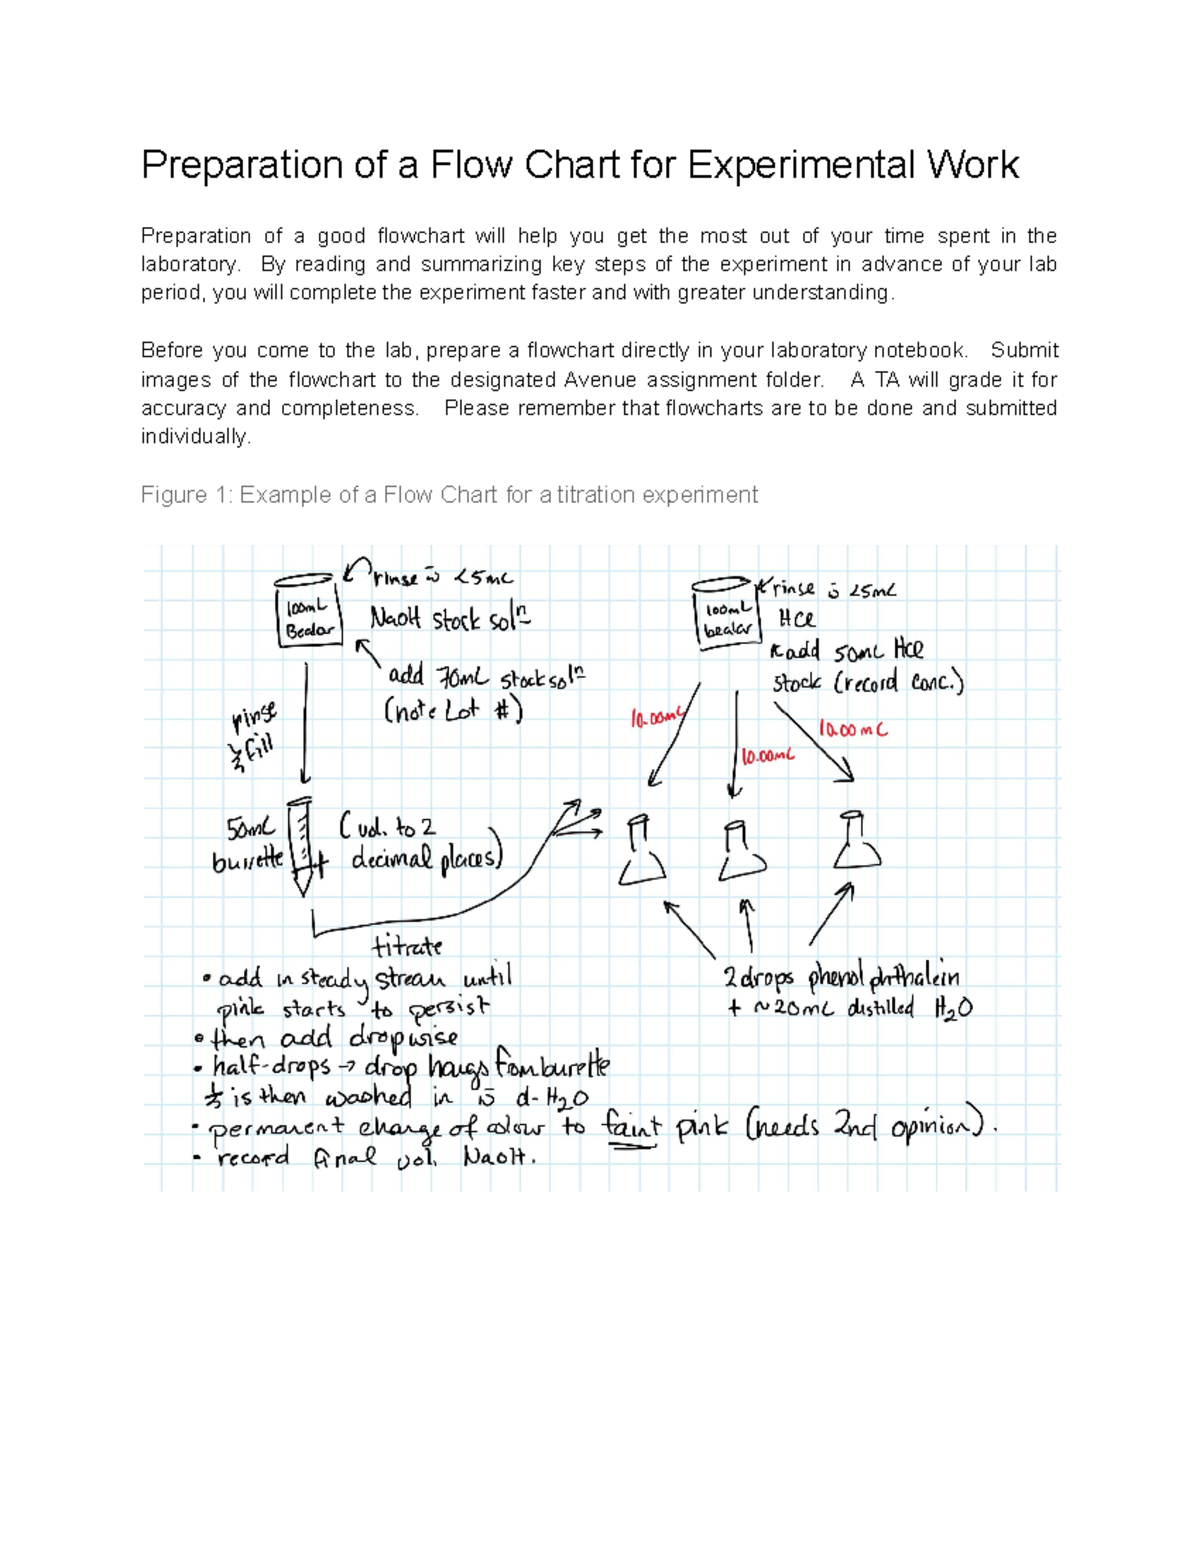 Preparation of a Flow Chart for Experimental Work
Preparation of a good flowchart will help you get the most out of your time spent in the
laboratory. By reading and summarizing key steps of the experiment in advance of your lab
period, you will complete the experiment faster and with greater understanding.
Before you come to the lab, prepare a flowchart directly in your laboratory notebook. Submit
images of the flowchart to the designated Avenue assignment folder. A TA will grade it for
accuracy and completeness. Please remember that flowcharts are to be done and submitted
individually.
Figure 1: Example of a Flow Chart for a titration experiment
rinse w̄ <5mL
NaOH stock solⁿ
100mL
Beaker
add 70mL stock solⁿ
(note Lot #)
rinse
& fill
50mL
burette
(vol. to 2
decimal places)
titrate
• add in steady stream until
pink starts to persist
• then add dropwise
• half-drops → drop hangs from burette
& is then washed in w̄ d-H₂O
• permanent change of colour to faint pink (needs 2nd opinion).
• record final vol. NaOH.
rinse w̄ <5mL
HCl
100mL
beaker
add 50mL HCl
stock (record conc.)
10.00mL
10.00mL
10.00mL
2 drops phenolphthalein
+ ~20mL distilled H₂O